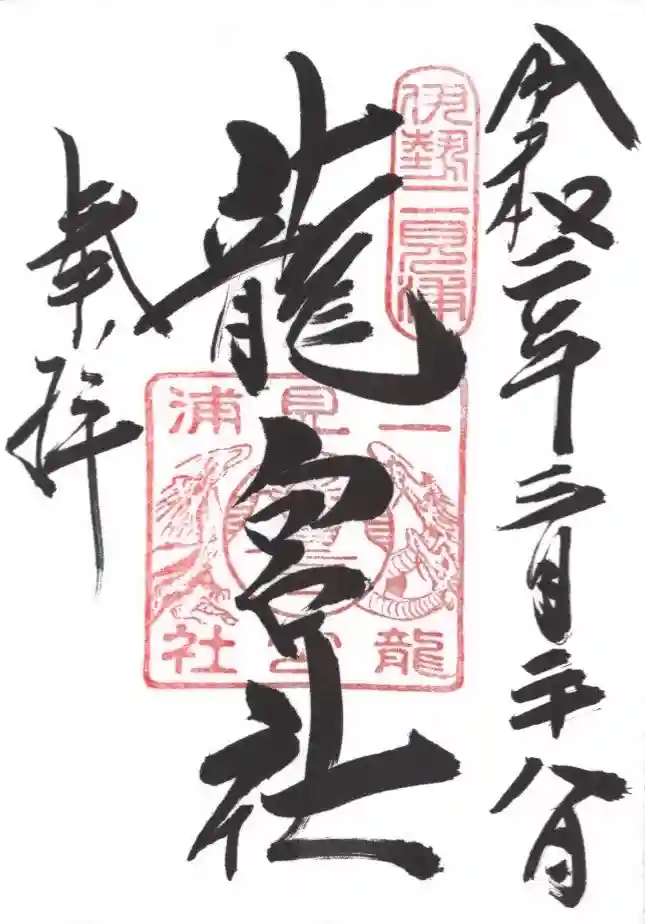 令和二年三月二十八日
伊勢二見
龍宮社
二見浦
龍宮社
奉拝